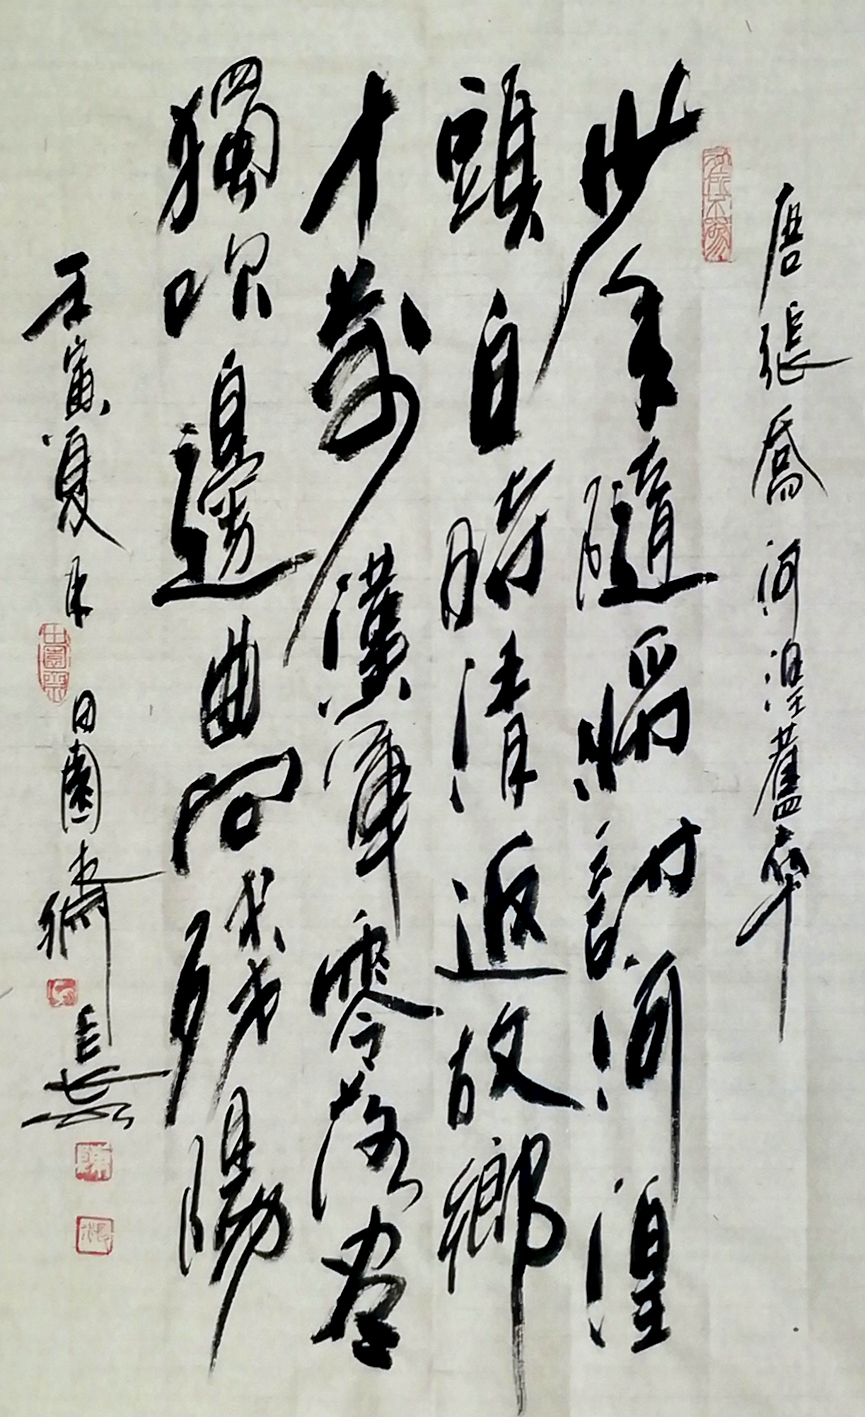 唐張喬河湟舊卒
少年隨將討河湟
頭白時清返故鄉
十萬漢軍零落盡
獨吹邊曲向殘陽
壬寅夏月田園齋
田園齋